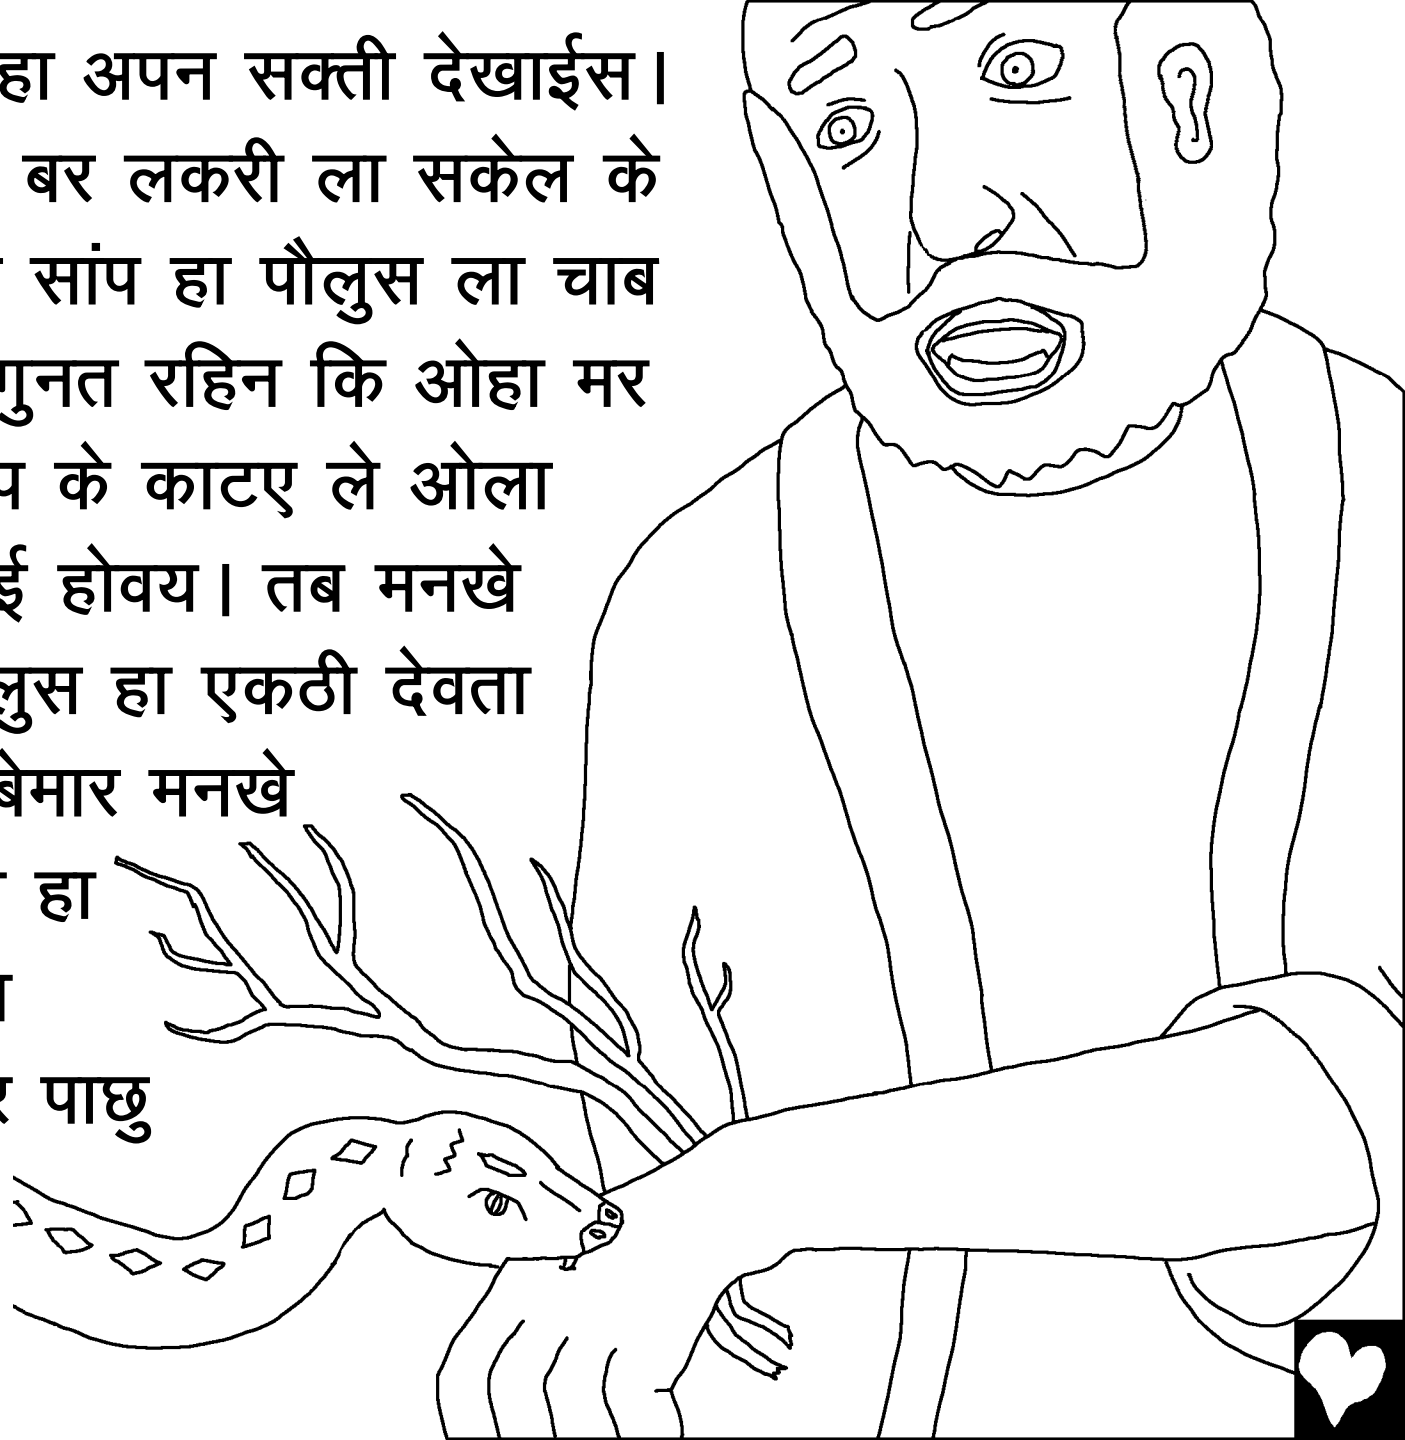 हा अपन सक्ती देखाईस।
बर लकरी ला सकेल के
सांप हा पौलुस ला चाब
गुनत रहिन कि ओहा मर
के काटए ले ओला
होवय। तब मनखे
हा एकठी देवता
बेमार मनखे
हा
पाछु